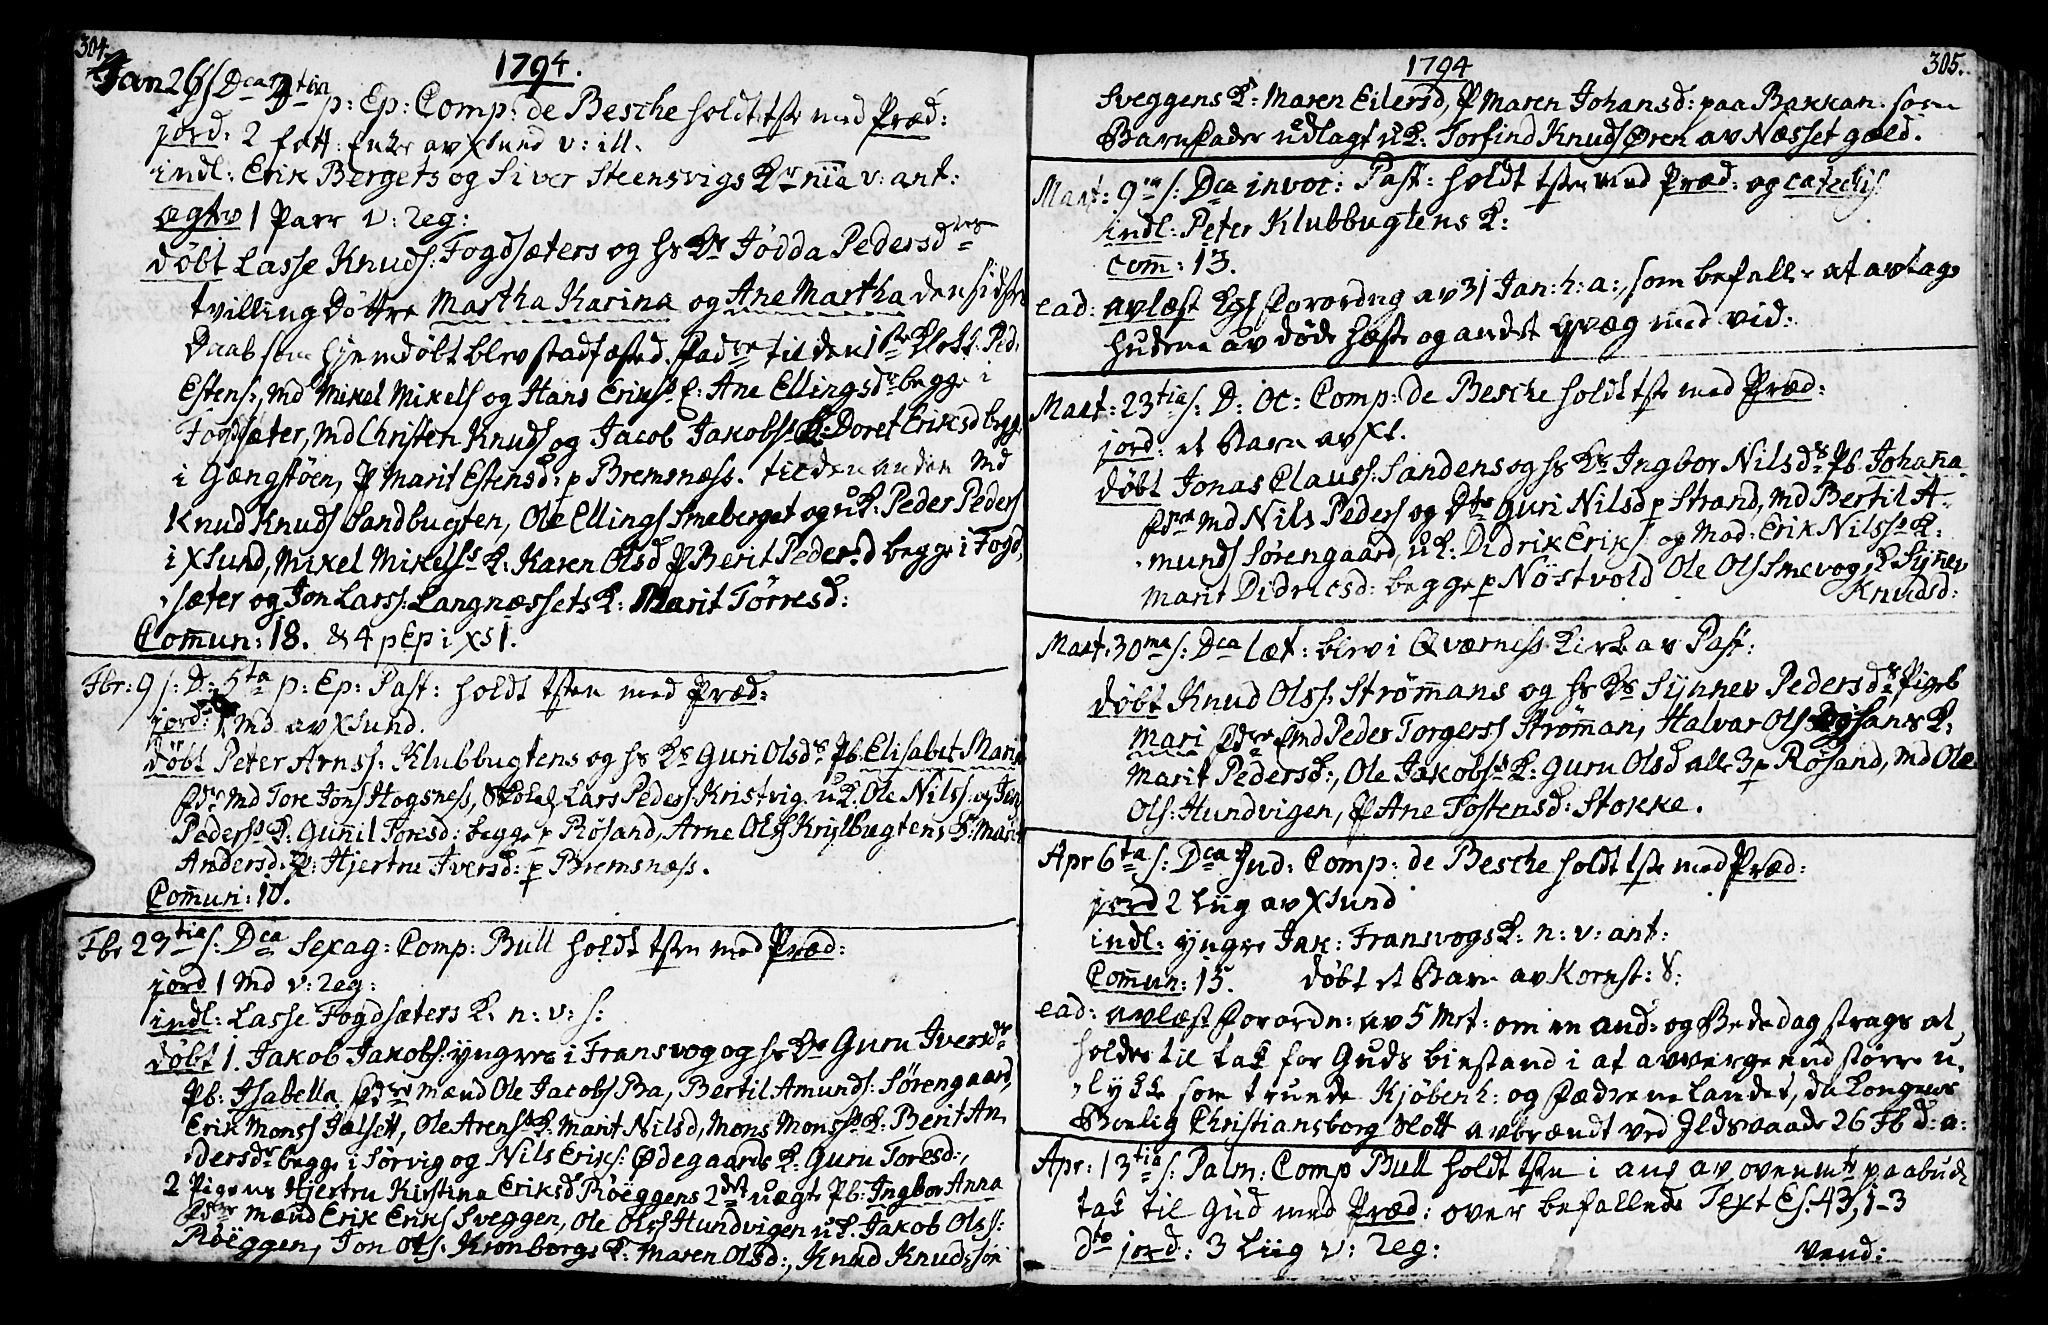 304.
1794.
Jan 26 s: Dca 3tia p: Ep: Comp: de Besche holdt tste med Præd:
jord: 2 fatt: Enker av Xsund v: ill.
indl: Erik Bergets og Siver Steensvigs Kr nia v: ant:
ægtv 1 Parr v: reg:
døbt Lasse Knuds: Fogdsæters og hs Ks Jødda Pedersdrs
tvilling Døttre Martha Karina og Ane Martha den sidstes
Daab som hjemdøbt blev stadfæsted. Fadre til den 1ste Klokk. Ped.
Estens:, Md Mikel Mikels og Hans Eriks K: Ane Ellingsdr begge i
Fogdsæter, Md Christen Knuds og Jacob Jakobss K: Doret Eriksd begge
i Gængstøen, P Marit Estensd: p Bremsnæss. til den anden Md
Knud Knuds Sandbugten, Ole Ellings Smeberget og uK: Peder Peders
i Xsund, Mikel Mikelss K: Karen Olsd P Berit Pedersd begge i Fogd,
sæter og Jon Larss: Langnæssets K: Marit Tørresd:
Com̅un: 18. & 4 p Ep i xs 1.
Fbr: 9 s: D: 5ta p: Ep: Past: holdt tsten med Præd:
jord: 1 Md av Xsund.
døbt Peter Arnss: Klubbugtens og hs Ks Guri Olsdr Pb. Elisabet Maria
Fdre Md Tore Jons Hogsness, Skolel Lars Peders Kristvig uK. Ole Nilss: og Jens
Pederss K: Gunil Toresd: begge p Røsand, Arne Ols Krislbugtens K: Marit
Andersd: P: Hjertru Iversd: p Bremsnæss.
Com̅un: 10.
Fbr 23tia s: Dca Sexag: Comp: Bull holdt tsten med Præd:
jord 1 Md v: reg:
indl: Lasse Fogdsæters K: n: v: s:
døbt 1. Jakob Jakobs: yngres i Fransvog og hs Ks Guru Iversdr
Pb: Isabella Fdre mænd Ole Jacobs Ba, Bertil Amunds: Sørengaard,
Erik Monss Jalsett, Ole Arenss K: Marit Nilsd, Mons Monss K: Berit An
dersdr begge i Sørvig og Nils Eriks: Ødegaards K: Guru Toresd:,
2 Pigens Hjertru Kirstina Eriksd Røeggens 2det uægte Pb: Ingbor Anna
Fdre mænd Erik Eriks Sveggen, Ole Olss Hundvigen uK. Jakob Olss:
Røeggen, Jon Ols: Kronborgs K: Maren Olsd:, Knud Knudssøn
1794
305.
Sveggens K: Maren Eilersd, P Maren Johansd: paa Bakkan. som
Barnfader udlagt uK: Torfind Knuds Øren av Næsset gæld.
Mart: 9na s: Dca invoc: Past: holdt tsten med Præd: og catechis
indl: Peter Klubbugtens K:
com̅: 13.
ead: avlæst Kgl Forordng av 31 Jan: h: a:, som befaller at avtage
hudene av døde hæste og andet qvæg med vid:
Mart: 23tia s: D: Oc: Comp: de Besche holdt tste med Præd:
jord: et Barn av Xt.
døbt Jonas Clauss: Sandens og hs Ks Ingbor Nilsdr Pb. Johana
Fdre Md Nils Peders og Dto Guri Nilsd p Strand, Md Bertil A-
munds Sørengaard, uK: Didrik Eriks: og Mad: Erik Nilss K:
Marit Didricsd: begge p Nøstvold Ole Olss Smevog, K Synnev
Knudsd:
Mart: 30ma s: Dca læt: blev i Qværness Kirke av Past:
døbt Knud Olss: Strøm̅ans og hs Ks Synnev Pedersdr Pigeb
Mari Fdre Md Peder Torgerss Strøm̅an, Halvar Ols Røsands K:
Marit Pedersd:, Ole Jakobss K: Guru Olsd alle 3 p Røsand, Md Ole
Ols: Hundvigen, P Ane Tostensd: Stokke.
Apr 6ta s: Dca Jud: Comp: de Besche holdt tste med Præd:
jord 2 Liig av Xsund
indl: yngre Jak: Fransvogs K: n: v: ant:
Com̅un: 15. døbt et Barn av Kornst: S:
ead: avlæst Forordn: av 5 Mrt: om en and: og Bededag strags at
holdes til tak for Guds bistand i at avværge end større u,
lykke som truede Kjøbenh: og Fædrenelandet, da Kongens
Bolig Christiansborg Slott avbrændt ved Ildsvaade 26 Fb d: a:
Apr: 13tia s: Palm: Comp Bull holdt tsten i anl av ovenmte paabudne
tak til Gud med Præd: over befallede Text Es: 43, 1-3
dto jord: 3 Liig v: reg:
vend: